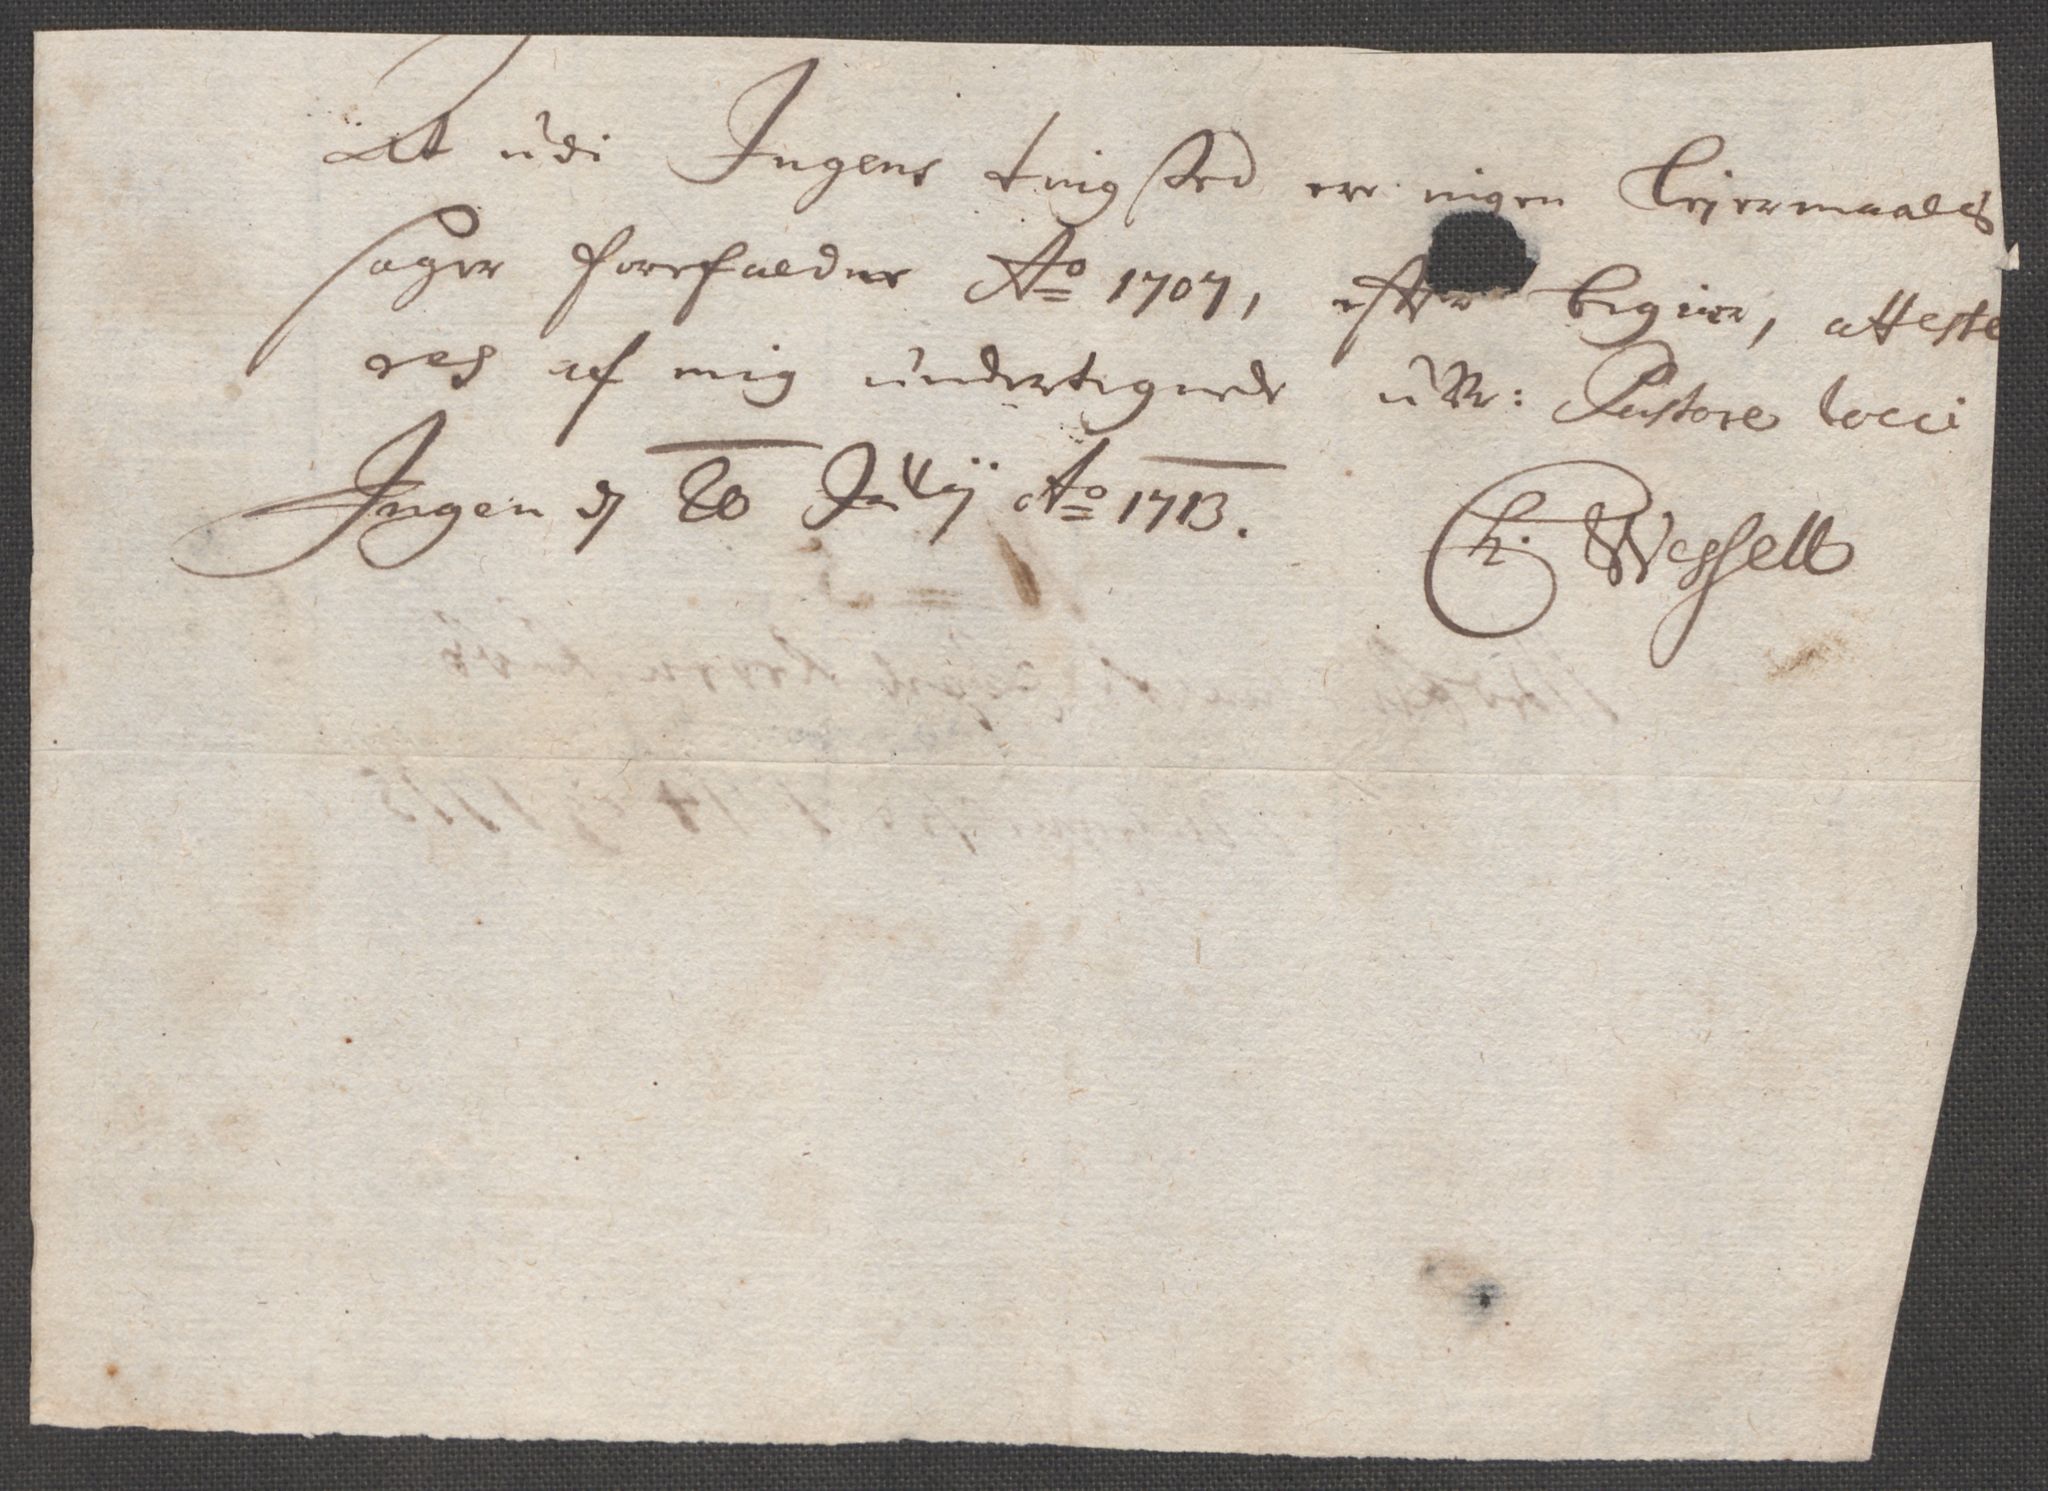 At udi Ingens tingsted ere ingen Leyermaals
sager forefaldne Ao 1707, efter begier, atteste
res af mig undertegnede Pastore loci
Ingen d 20 Ao 1713.
Ch. Wessell